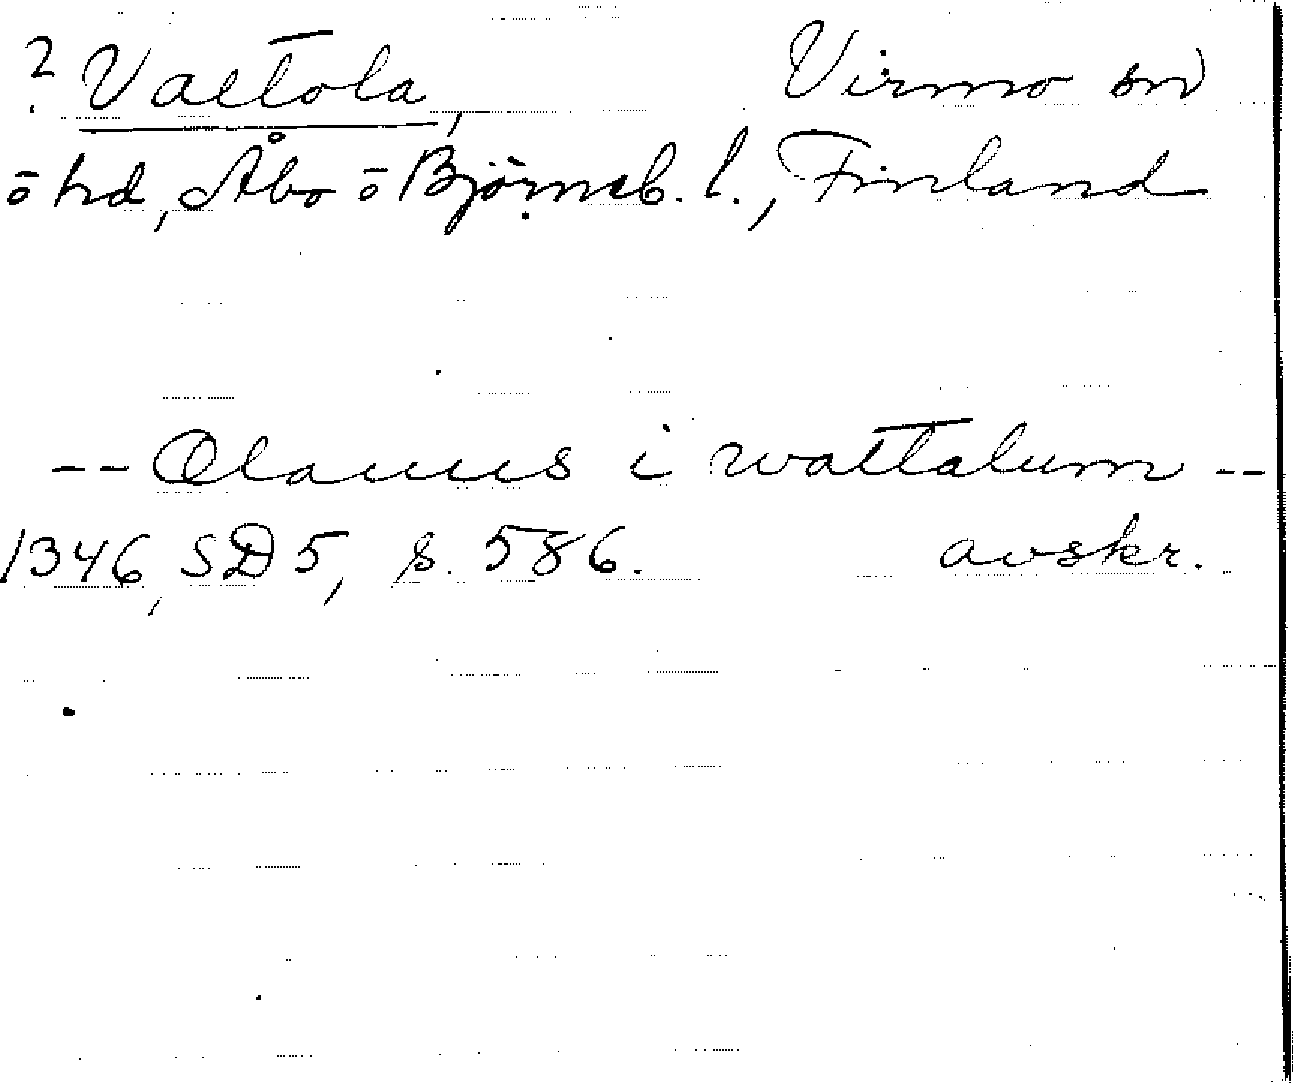 ? Valtola, Virmo sn
o hd, Åbo o Björneb. l., Finland
-- Olauus i wattalum --
1346, SD 5, s. 586. avskr.